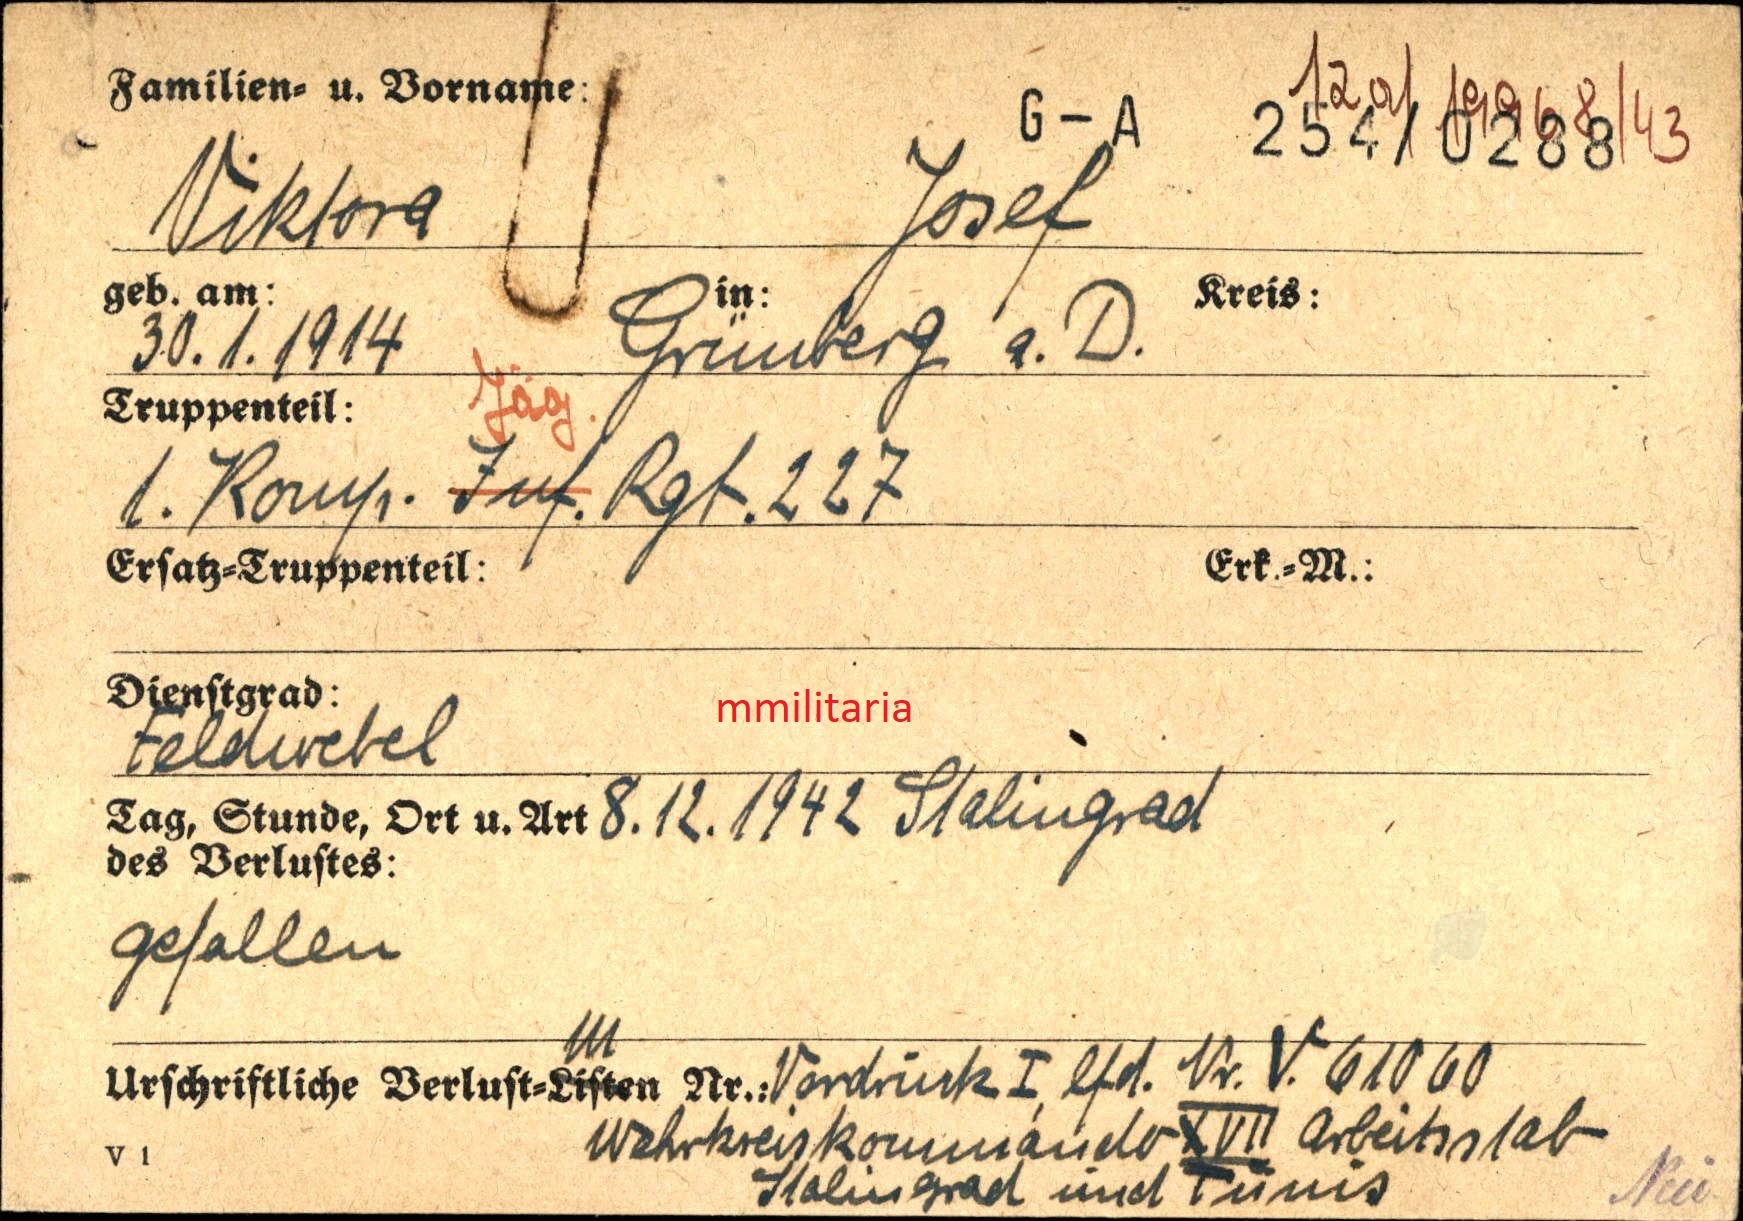 Familien- u. Vorname:
G-A 254/0288
Viktora Josef
geb. am: in: Kreis:
30.1.1914 Grünberg a. D.
Truppenteil: Jäg.
1. Komp. Inf. Rgt. 227
Ersatz-Truppenteil: Erk.-M.:
Dienstgrad:
Feldwebel
mmilitaria
Tag, Stunde, Ort u. Art 8.12.1942 Stalingrad
des Verlustes:
gefallen
Urschriftliche Verlust-Listen Nr.: Vordruck I, lfd. Nr. V. 61060
Wehrkreiskommando XVII Arbeitsstab
V 1
Stalingrad und Tunis